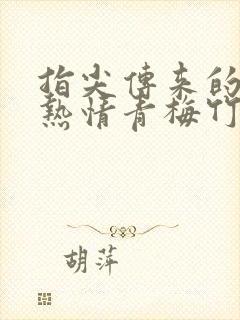 指尖傳來的
熱情青梅竹
胡萍